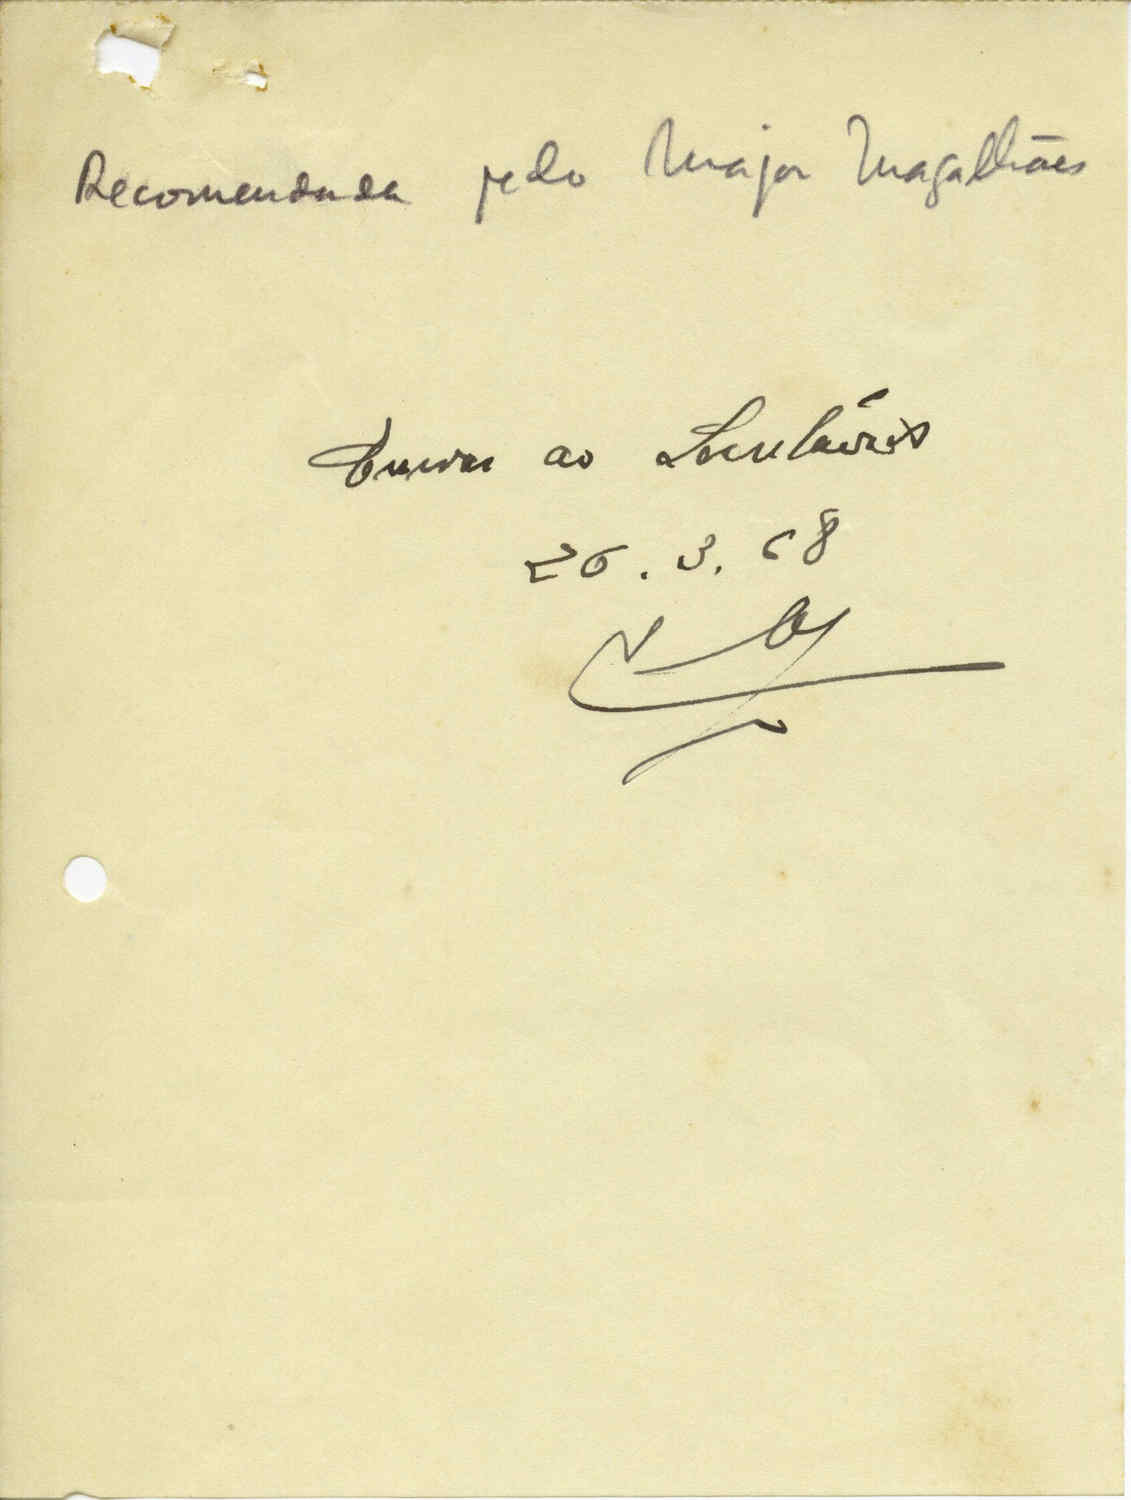 Recomendada pelo Major Magalhães
Enviar ao Secretário
26.3.68